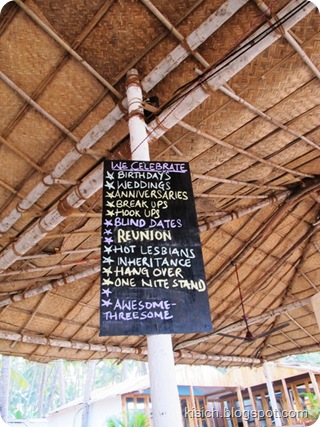 WE CELEBRATE
☆ BIRTHDAYS
☆ WEDDINGS
☆ ANNIVERSARIES
☆ BREAK UPS
☆ HOOK UPS
☆ BLIND DATES
☆ REUNION
☆ HOT LESBIANS
☆ INHERITANCE
☆ HANG OVER
☆ ONE NITE STAND
☆
☆ AWESOME-
THREESOME
kisich.blogspot.com